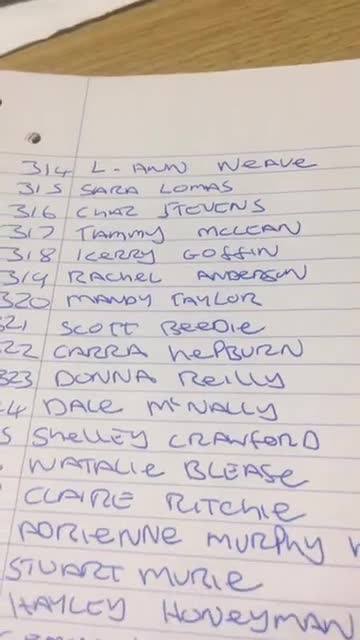 314 L-ANN WEAVE
315 SARA LOMAS
316 CHAZ STEVENS
317 TAMMY McLEAN
318 KERRY GOFFIN
319 RACHEL ANDERSON
320 MANDY TAYLOR
321 SCOTT BEEDIE
22 CARRA HEPBURN
323 DONNA REILLY
4 DALE McNALLY
5 SHELLEY CRAWFORD
NATALIE BLEASE
CLAIRE RITCHIE
ADRIENNE MURPHY
STUART MURIE
HAYLEY HONEYMAN